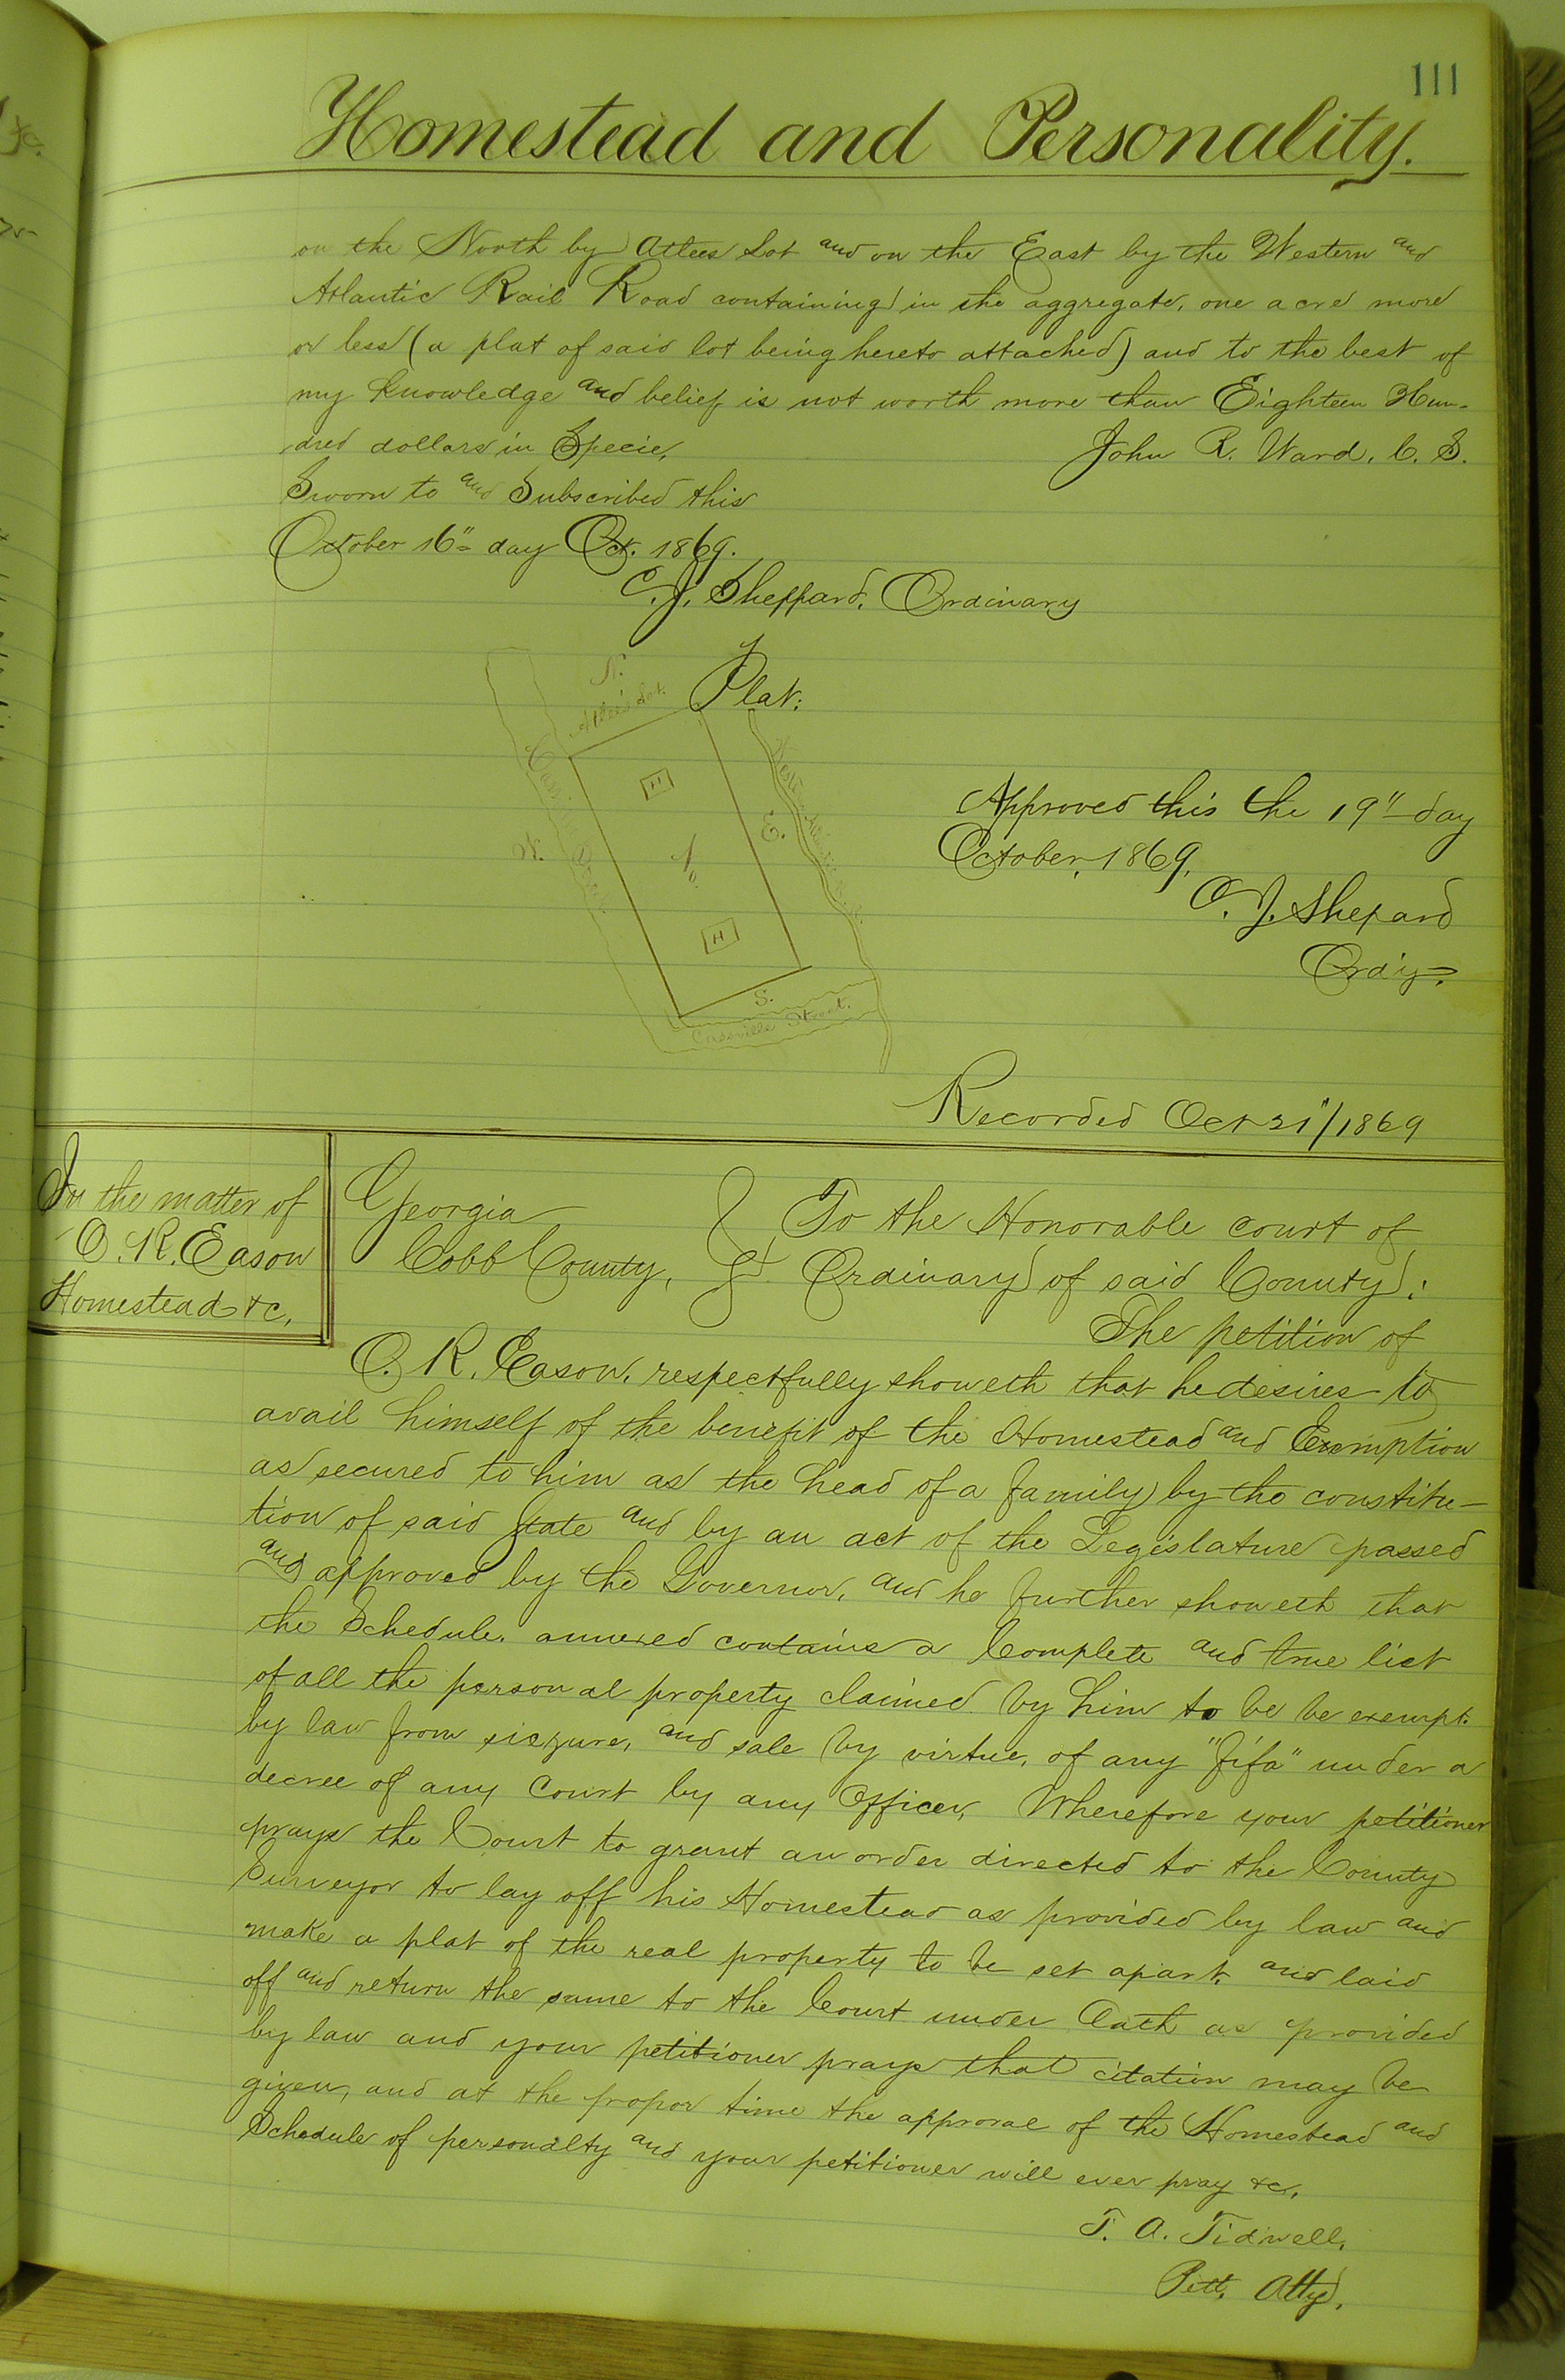 111
Homestead and Personality.
on the North by Atlees Lot and on the East by the Western and
Atlantic Rail Road containing in the aggregate, one acre more
or less (a plat of said lot being hereto attached) and to the best of
my knowledge and belief is not worth more than Eighteen Hun-
dred dollars in Specie,
John R. Ward. C. S.
Sworn to and Subscribed this
October 16" day Oct. 1869.
C. J. Sheppard. Ordinary
Plat.
N.
Atlees Lot.
H
E.
W.
H
S.
Cassville Street.
Approved this the 19" day
October, 1869,
C. J. Shepard
Ord'y.
Recorded Oct 21"/1869
In the matter of
O. R. Eason
Homestead &c.
Georgia
Cobb County,
To the Honorable court of
Ordinary of said County:
The petition of
O. R. Eason. respectfully showeth that he desires to
avail himself of the benefit of the Homestead and Exemption
as secured to him as the head of a family by the constitu-
tion of said State and by an act of the Legislature passed
and approved by the Governor, and he further showeth that
the Schedule. annexed contains a Complete and true list
of all the personal property claimed by him to be be exempt
by law from siezure, and sale by virtue, of any "fifa" under a
decree of any Court by any Officer, Wherefore your petitioner
prays the Court to grant an order directed to the County
Surveyor to lay off his Homestead as provided by law and
make a plat of the real property to be set apart. and laid
off and return the same to the Court under Oath as provided
by law and your petitioner prays that citation may be
given, and at the propor time the approval of the Homestead and
Schedule of personalty and your petitioner will ever pray &c.
T. A. Tidwell,
Pett. Atty.